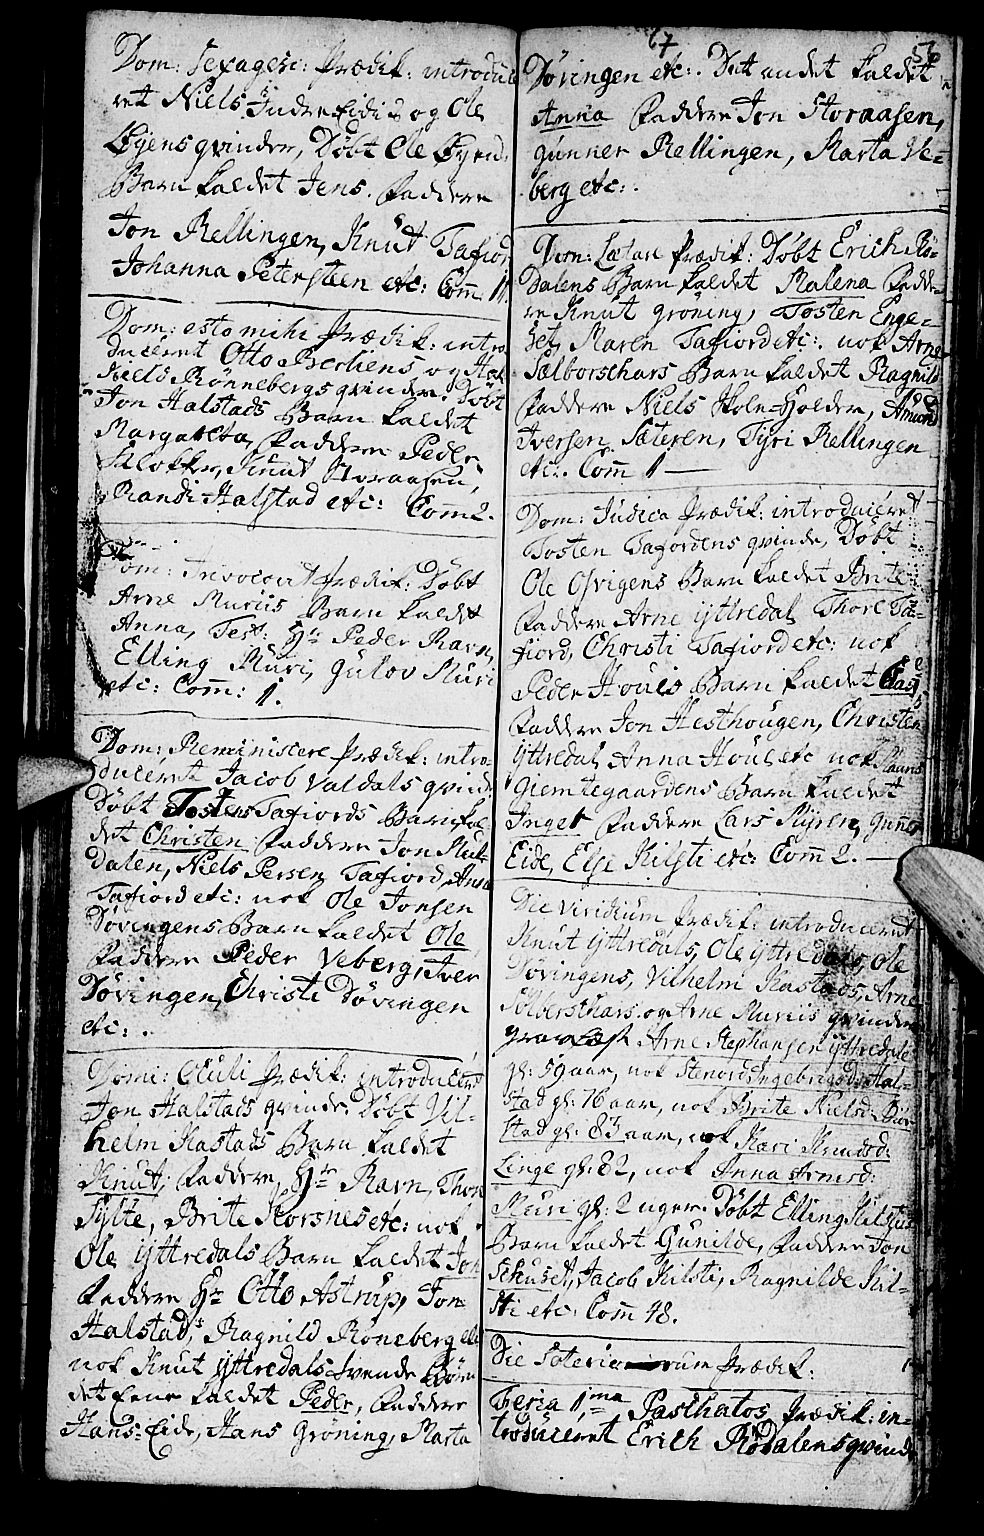 Dom: Sexages: Prædik: introduce
ret Niels Indreeidis og Ole
Øyens qvinder, Døbt Ole Øyens
Barn kaldet Jens. Faddere
Jon Rellingen, Knut Tafiord
Johanna Petersteen etc: Com̄ 11.
Dom: esto mihi Prædik: intro
duceret Otto Berliens og
Niels Rønnebergs qvinder. Døbt
Jon Halstads Barn kaldet
Margareta, Faddere Peder
Klokker, Knut Storaasen,
Randi Halstad etc: Com 2.
Dom: Invocavit Prædik: Døbt
Arne Muriis Barn kaldet
Anna, Test: Hr Peder Ravn,
Elling Muri, Gulov Muri
etc: Com̄: 1.
Dom: Reminiscere Prædik: intro-
duceret Jacob Valdals qvinde
Døbt Tostens Tafiords Barn kal
det Christen Faddere Jon Mul-
dalen, Niels Persen Tafiord, Anna
Tafiord etc: nok Ole Jonsen
Døvingens Barn kaldet Ole
Faddere Peder Veberg, Iver
Døvingen, Christi Døvingen
etc: .
Domi: Oculi Prædik: introduceret
Jon Halstads qvinde. Døbt Vil-
helm Kastads Barn kaldet
Knut, Faddere, Hr Ravn, Thore
Sylte, Brite Korsnes etc: nok
Ole Yttredals Barn kaldet Jon
Faddere Hr Otto Astrup, Jon
Halstad, Ragnild Røneberg etc
nok Knut Yttredals tvende Børn
det Eene kaldet Peder, Faddere
Hans Eide, Hans Grøning, Marta
67
56
Døvingen etc: . Dett andet kaldet
Anna Faddere Jon Storaasen,
Gunner Rellingen, Marta Ve-
berg etc: .
Dom: Lætare Prædik: Døbt Erich Rø-
dalens Barn kaldet Malena Fadde-
re Knut Grøning, Tosten Enge-
set, Maren Tafiord etc:, nok Arne
Sælborschars Barn kaldet Ragnild
Faddere Niels Skole-Holder, Amund
Iversen Sæteren, Tyri Rellingen
etc: . Com̄ 1 —
Dom: Judica Prædik: introduceret
Tosten Tafiordens qvinde, Døbt
Ole Osvigens Barn kaldet Brite
Faddere Arne Yttredal Thore Ta-
fiord, Christi Tafiord etc: nok
Peder Houls Barn kaldet
Faddere Jon Hesthougen, Christen
Yttredal Anna Houl etc nok Mauns
Giemtegaardens Barn kaldet
Inger Faddere Lars Myren, Gunner
Eide, Else Kilsti etc: Com̄ 2. —
Die Viridium Prædik: introduceret
Knut Yttredals, Ole Yttredals, Ole
Døvingens, Vilhelm Kastads, Arne
Sølberschars og Arne Muriis qvinder
Arne Stephansen Yttredals
gl: 59 aar, nok Ingebrigtsd: Hal-
stad gl: 76 aar, nok Brite Nielsd: Bør-
stad gl: 83 aar, nok Kari Knudsd:
Linge gl: 82, nok Anna Arnesd:
Muri gl: 2 uger. Døbt Elling Kilstiis
Barn kaldet Gunilde, Faddere Jon
Jacob Kilsti, Ragnilde Kil-
sti etc: Com̄ 48.
Die Prædik:
Feria 1ma Paschatos Prædik: in-
troduceret Erich Rødalens qvinde